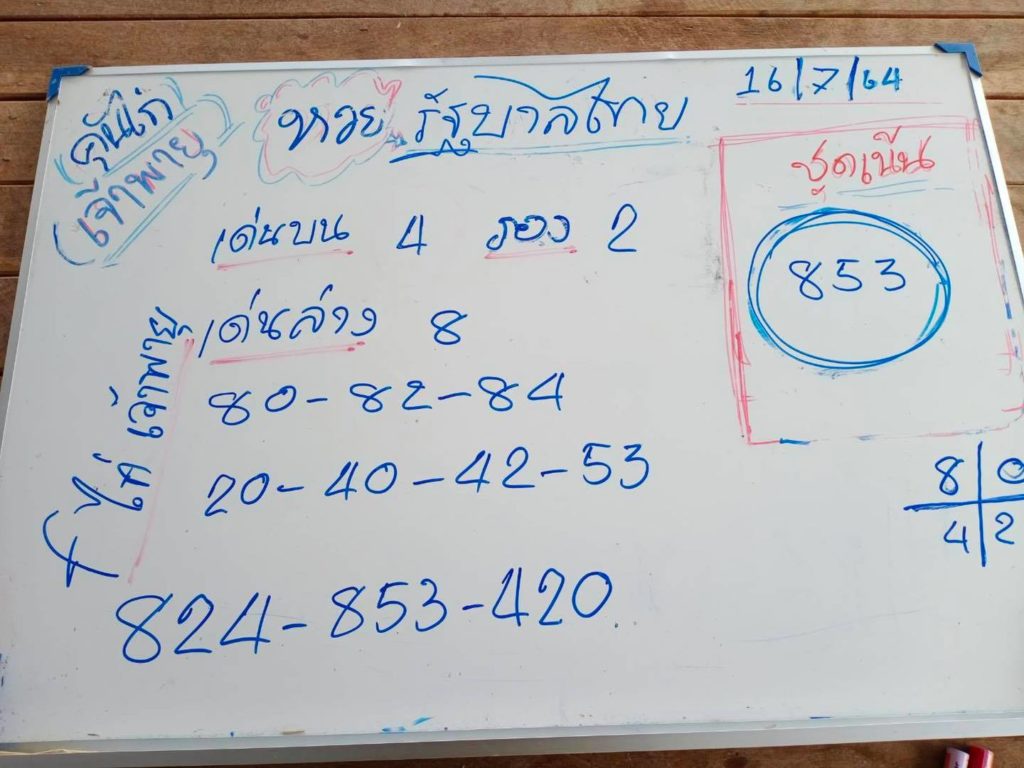 หวย รัฐบาลไทย
16/7/64
เจ้าพายุ
ชุดเน้น
853
เด่นบน 4 รอง 2
เด่นล่าง 8
80-82-84
20-40-42-53
8 0
4 2
824-853-420
ไก่ เจ้าพายุ